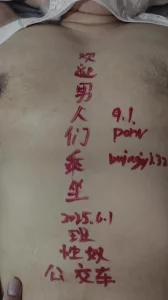 欢迎男人们乘坐
2025.6.1
班
性奴
公交车
9.1.
porn